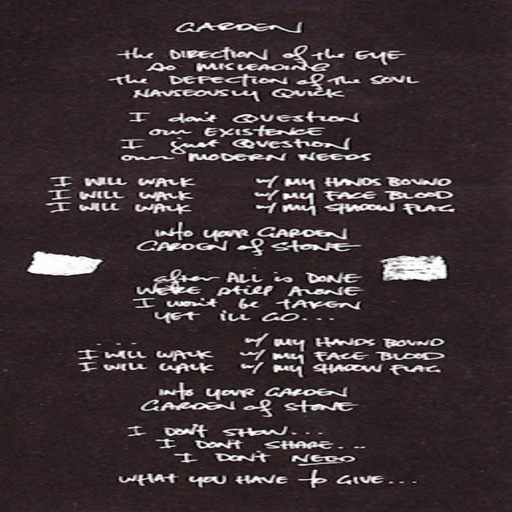 GARDEN
the DIRECTION of the EYE
So MISLEADING
the DEFECTION of the SOUL
NAUSEOUSLY QUICK
I don't QUESTION
our EXISTENCE
I just QUESTION
our MODERN NEEDS
I WILL WALK w/ MY HANDS BOUND
I WILL WALK w/ MY FACE BLOOD
I WILL WALK w/ MY SHADOW FLAG
into YOUR GARDEN
GARDEN of STONE
after ALL is DONE
WE'RE still ALONE
I won't be TAKEN
YET ILL GO...
.... w/ MY HANDS BOUND
I WILL WALK w/ MY FACE BLOOD
I WILL WALK w/ MY SHADOW FLAG
into YOUR GARDEN
GARDEN of STONE
I DON'T SHOW...
I DON'T SHARE...
I DON'T NEED
WHAT YOU HAVE to GIVE...